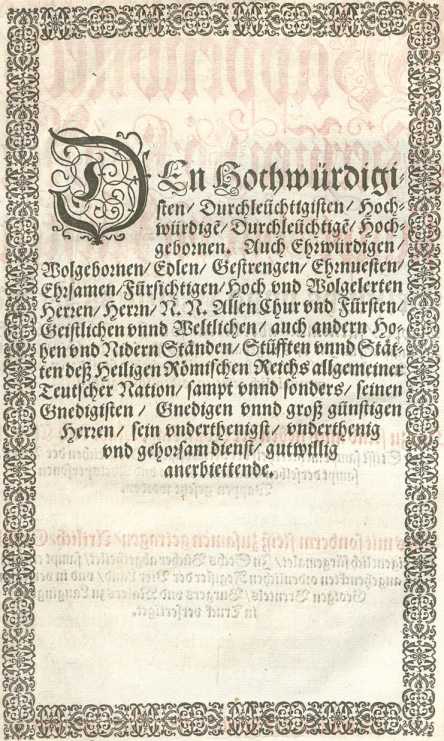 DEn Hochwürdigi-
sten/ Durchleüchtigisten/ Hoch-
würdigē/ Durchleüchtigē/ Hoch-
gebornen. Auch Ehrwürdigen/
Wolgebornen/ Edlen/ Gestrengen/ Ehrnuesten
Ehrsamen/ Fürsichtigen/ Hoch vnd Wolgelerten
Herren/ Herrn/ N. N. Allen Chur vnd Fürsten/
Geistlichen vnnd Weltlichen/ auch andern Ho-
hen vnd Nidern Ständen/ Stüfften vnnd Stät-
ten deß Heiligen Römischen Reichs allgemeiner
Teutscher Nation/ sampt vnnd sonders/ seinen
Gnedigisten/ Gnedigen vnnd groß günstigen
Herren/ sein vnderthenigst/ vnderthenig
vnd gehorsam dienst/ gutwillig
anerbiettende.